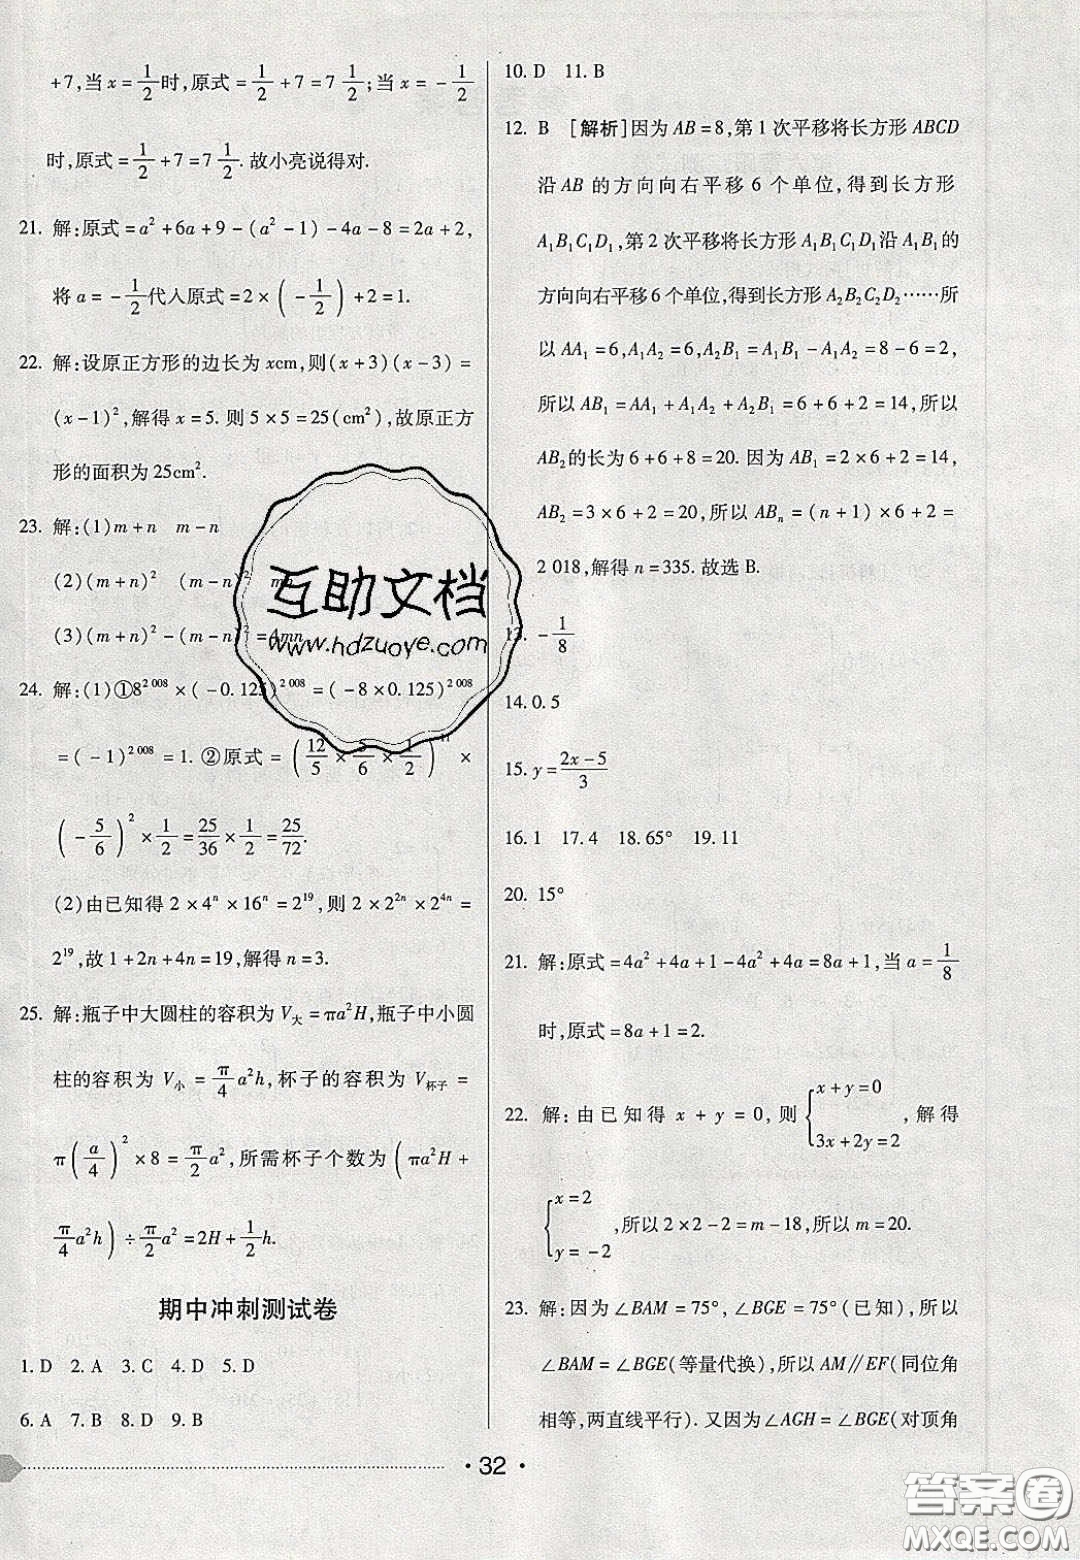 +7,当 x = 1/2 时,原式 = 1/2 + 7 = 7 1/2;当 x = -1/2
时,原式 = 1/2 + 7 = 7 1/2. 故小亮说得对.
21. 解:原式 = a² + 6a + 9 - (a² - 1) - 4a - 8 = 2a + 2,
将 a = -1/2 代入原式 = 2 × (-1/2) + 2 = 1.
22. 解:设原正方形的边长为 xcm,则(x+3)(x-3) =
(x-1)²,解得 x = 5. 则 5×5 = 25(cm²),故原正方
形的面积为 25cm².
23. 解:(1)m+n m-n
(2)(m+n)² (m-n)² mn
(3)(m+n)² - (m-n)² = 4mn
24. 解:(1)①8^2 008 × (-0.125)^2 008 = (-8×0.125)^2 008
= (-1)^2 008 = 1. ②原式 = (12/5 × 5/6 × 1/2)^n ×
(-5/6)² × 1/2 = 25/36 × 1/2 = 25/72.
(2)由已知得 2 × 4ⁿ × 16ⁿ = 2¹⁹,则 2 × 2²ⁿ × 2⁴ⁿ =
2¹⁹,故 1+2n+4n = 19,解得 n = 3.
25. 解:瓶子中大圆柱的容积为 V大 = πa²H,瓶子中小圆
柱的容积为 V小 = π/4 a²h,杯子的容积为 V杯子 =
π(a/4)² × 8 = π/2 a²,所需杯子个数为 (πa²H +
π/4 a²h) ÷ π/2 a² = 2H + 1/2 h.
期中冲刺测试卷
1. D 2. A 3. C 4. D 5. D
6. A 7. B 8. D 9. B
10. D 11. B
12. B [解析]因为 AB = 8,第 1 次平移将长方形 ABCD
沿 AB 的方向向右平移 6 个单位,得到长方形
A₁B₁C₁D₁,第 2 次平移将长方形 A₁B₁C₁D₁ 沿 A₁B₁ 的
方向向右平移 6 个单位,得到长方形 A₂B₂C₂D₂……所
以 AA₁ = 6,A₁A₂ = 6,A₂B₁ = A₁B₁ - A₁A₂ = 8 - 6 = 2,
所以 AB₁ = AA₁ + A₁A₂ + A₂B₁ = 6+6+2 = 14,所以
AB₂ 的长为 6+6+8 = 20. 因为 AB₁ = 2×6+2 = 14,
AB₂ = 3×6+2 = 20,所以 ABₙ = (n+1)×6+2 =
2 018,解得 n = 335. 故选 B.
13. -1/8
14. 0.5
15. y = (2x-5)/3
16. 1 17. 4 18. 65° 19. 11
20. 15°
21. 解:原式 = 4a² + 4a + 1 - 4a² + 4a = 8a + 1,当 a = 1/8
时,原式 = 8a + 1 = 2.
22. 解:由已知得 x + y = 0,则 { x+y=0 3x+2y=2 ,解得
{ x=2 y=-2 ,所以 2×2-2 = m-18,所以 m = 20.
23. 解:因为∠BAM = 75°,∠BGE = 75°(已知),所以
∠BAM = ∠BGE(等量代换),所以 AM∥EF(同位角
相等,两直线平行). 又因为∠AGH = ∠BGE(对顶角
· 32 ·
互助文档
www.hdzuoye.com
答案卷
MXQE.COM